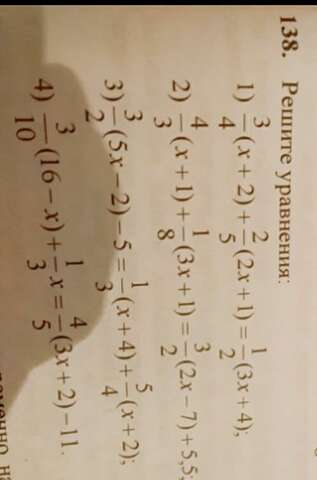 138. Решите уравнения:
1) 3/4(x + 2) + 2/5(2x + 1) = 1/2(3x + 4);
2) 4/3(x + 1) + 1/8(3x + 1) = 3/2(2x − 7) + 5,5;
3) 3/2(5x − 2) − 5 = 1/3(x + 4) + 5/4(x + 2);
4) 3/10(16 − x) + 1/3x = 4/5(3x + 2) − 11.